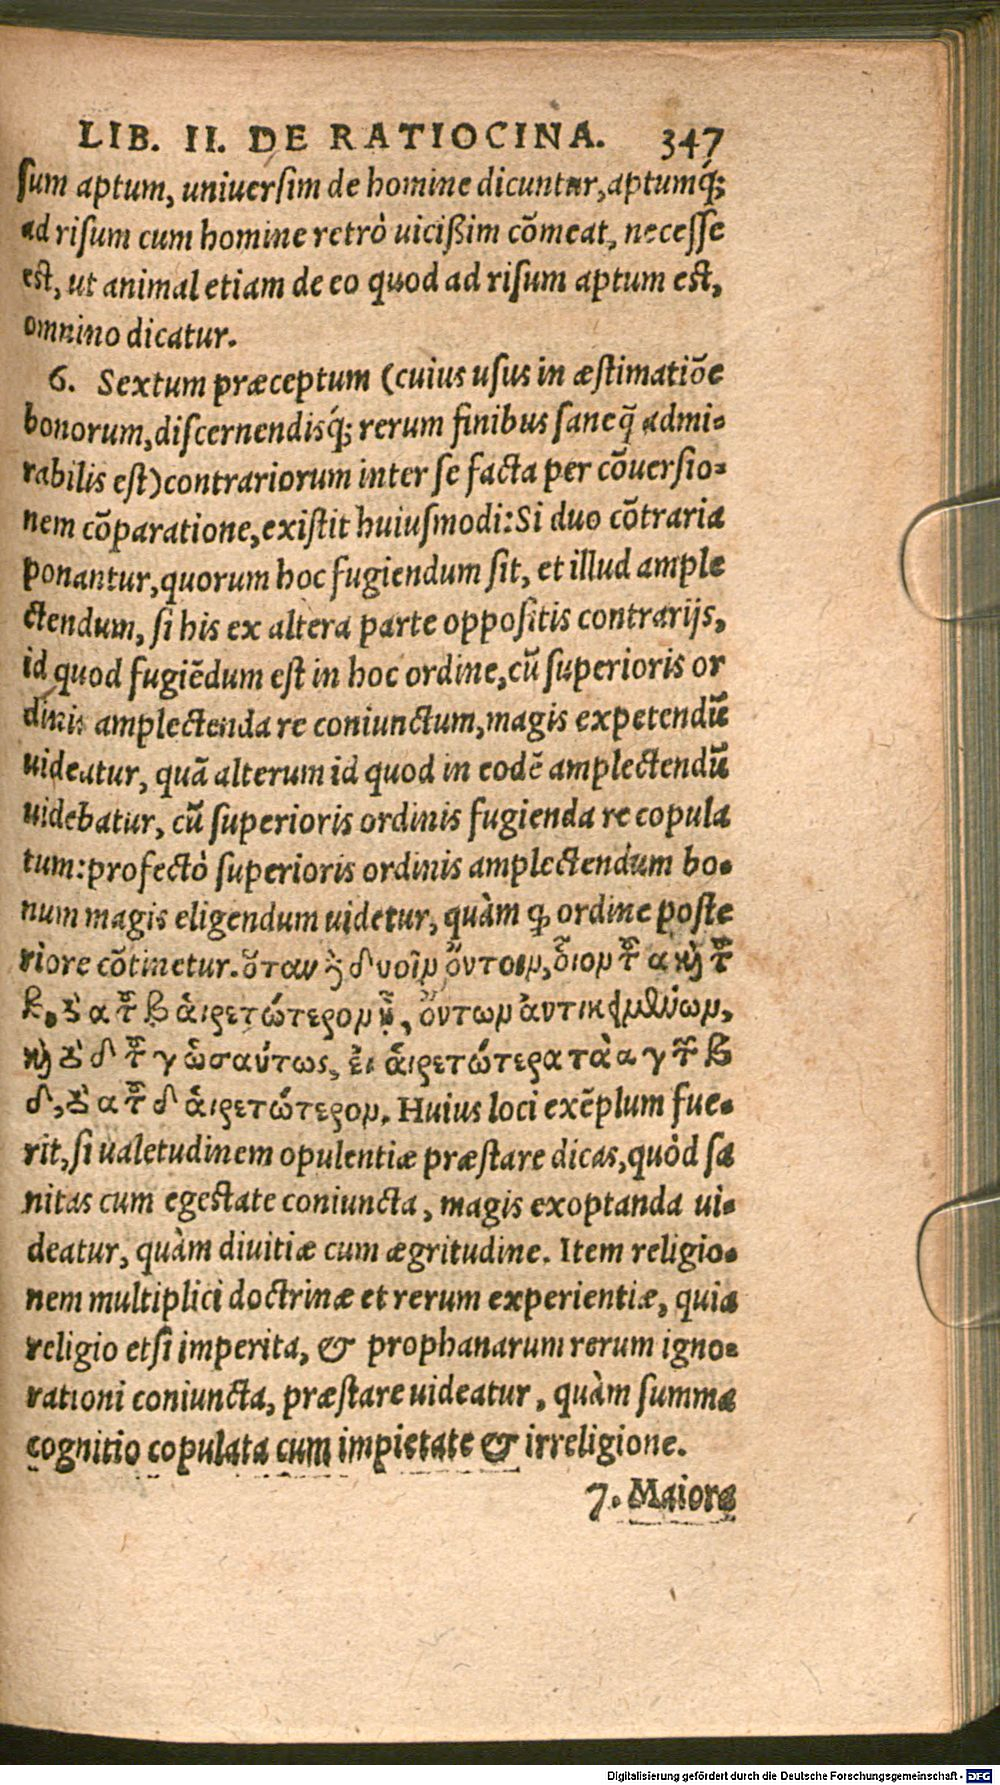 LIB. II. DE RATIOCINA. 347
ſum aptum, uniuerſim de homine dicuntur, aptumq́;
ad riſum cum homine retrò uicißim cōmeat, neceſſe
eſt, ut animal etiam de eo quod ad riſum aptum eſt,
omnino dicatur.
6. Sextum præceptum (cuius uſus in æſtimatiōe
bonorum, diſcernendisq́; rerum finibus ſaneq̃ admi-
rabilis eſt) contrariorum inter ſe facta per cōuerſio-
nem cōparatione, exiſtit huiuſmodi: Si duo cōtraria
ponantur, quorum hoc fugiendum ſit, et illud ample
ctendum, ſi his ex altera parte oppoſitis contrarijs,
id quod fugiēdum eſt in hoc ordine, cū ſuperioris or
dinis amplectenda re coniunctum, magis expetendū
uideatur, quā alterum id quod in eodē amplectendū
uidebatur, cū ſuperioris ordinis fugienda re copula
tum: profectò ſuperioris ordinis amplectendum bo-
num magis eligendum uidetur, quàm qđ ordine poſte
riore cōtinetur. ὅταν ἢ δυοῖν ὄντοιν, οἷον τ͂ α κỳ τ͂
β, τὸ α τ͂ β αἱρετώτερον ᾖ, ὄντων ἀντικειμένων,
κỳ τὸ δ τ͂ γ ὡσαύτως, εἰ αἱρετώτερα τὰ α γ τῶν β
δ, τὸ α τ͂ δ αἱρετώτερον. Huius loci exēplum fue-
rit, ſi ualetudinem opulentiæ præſtare dicas, quòd ſa
nitas cum egeſtate coniuncta, magis exoptanda ui-
deatur, quàm diuitiæ cum ægritudine. Item religio-
nem multiplici doctrinæ et rerum experientiæ, quia
religio etſi imperita, & prophanarum rerum igno-
rationi coniuncta, præſtare uideatur, quàm ſumma
cognitio copulata cum impietate & irreligione.
7. Maiora
Digitalisierung gefördert durch die Deutsche Forschungsgemeinschaft - DFG